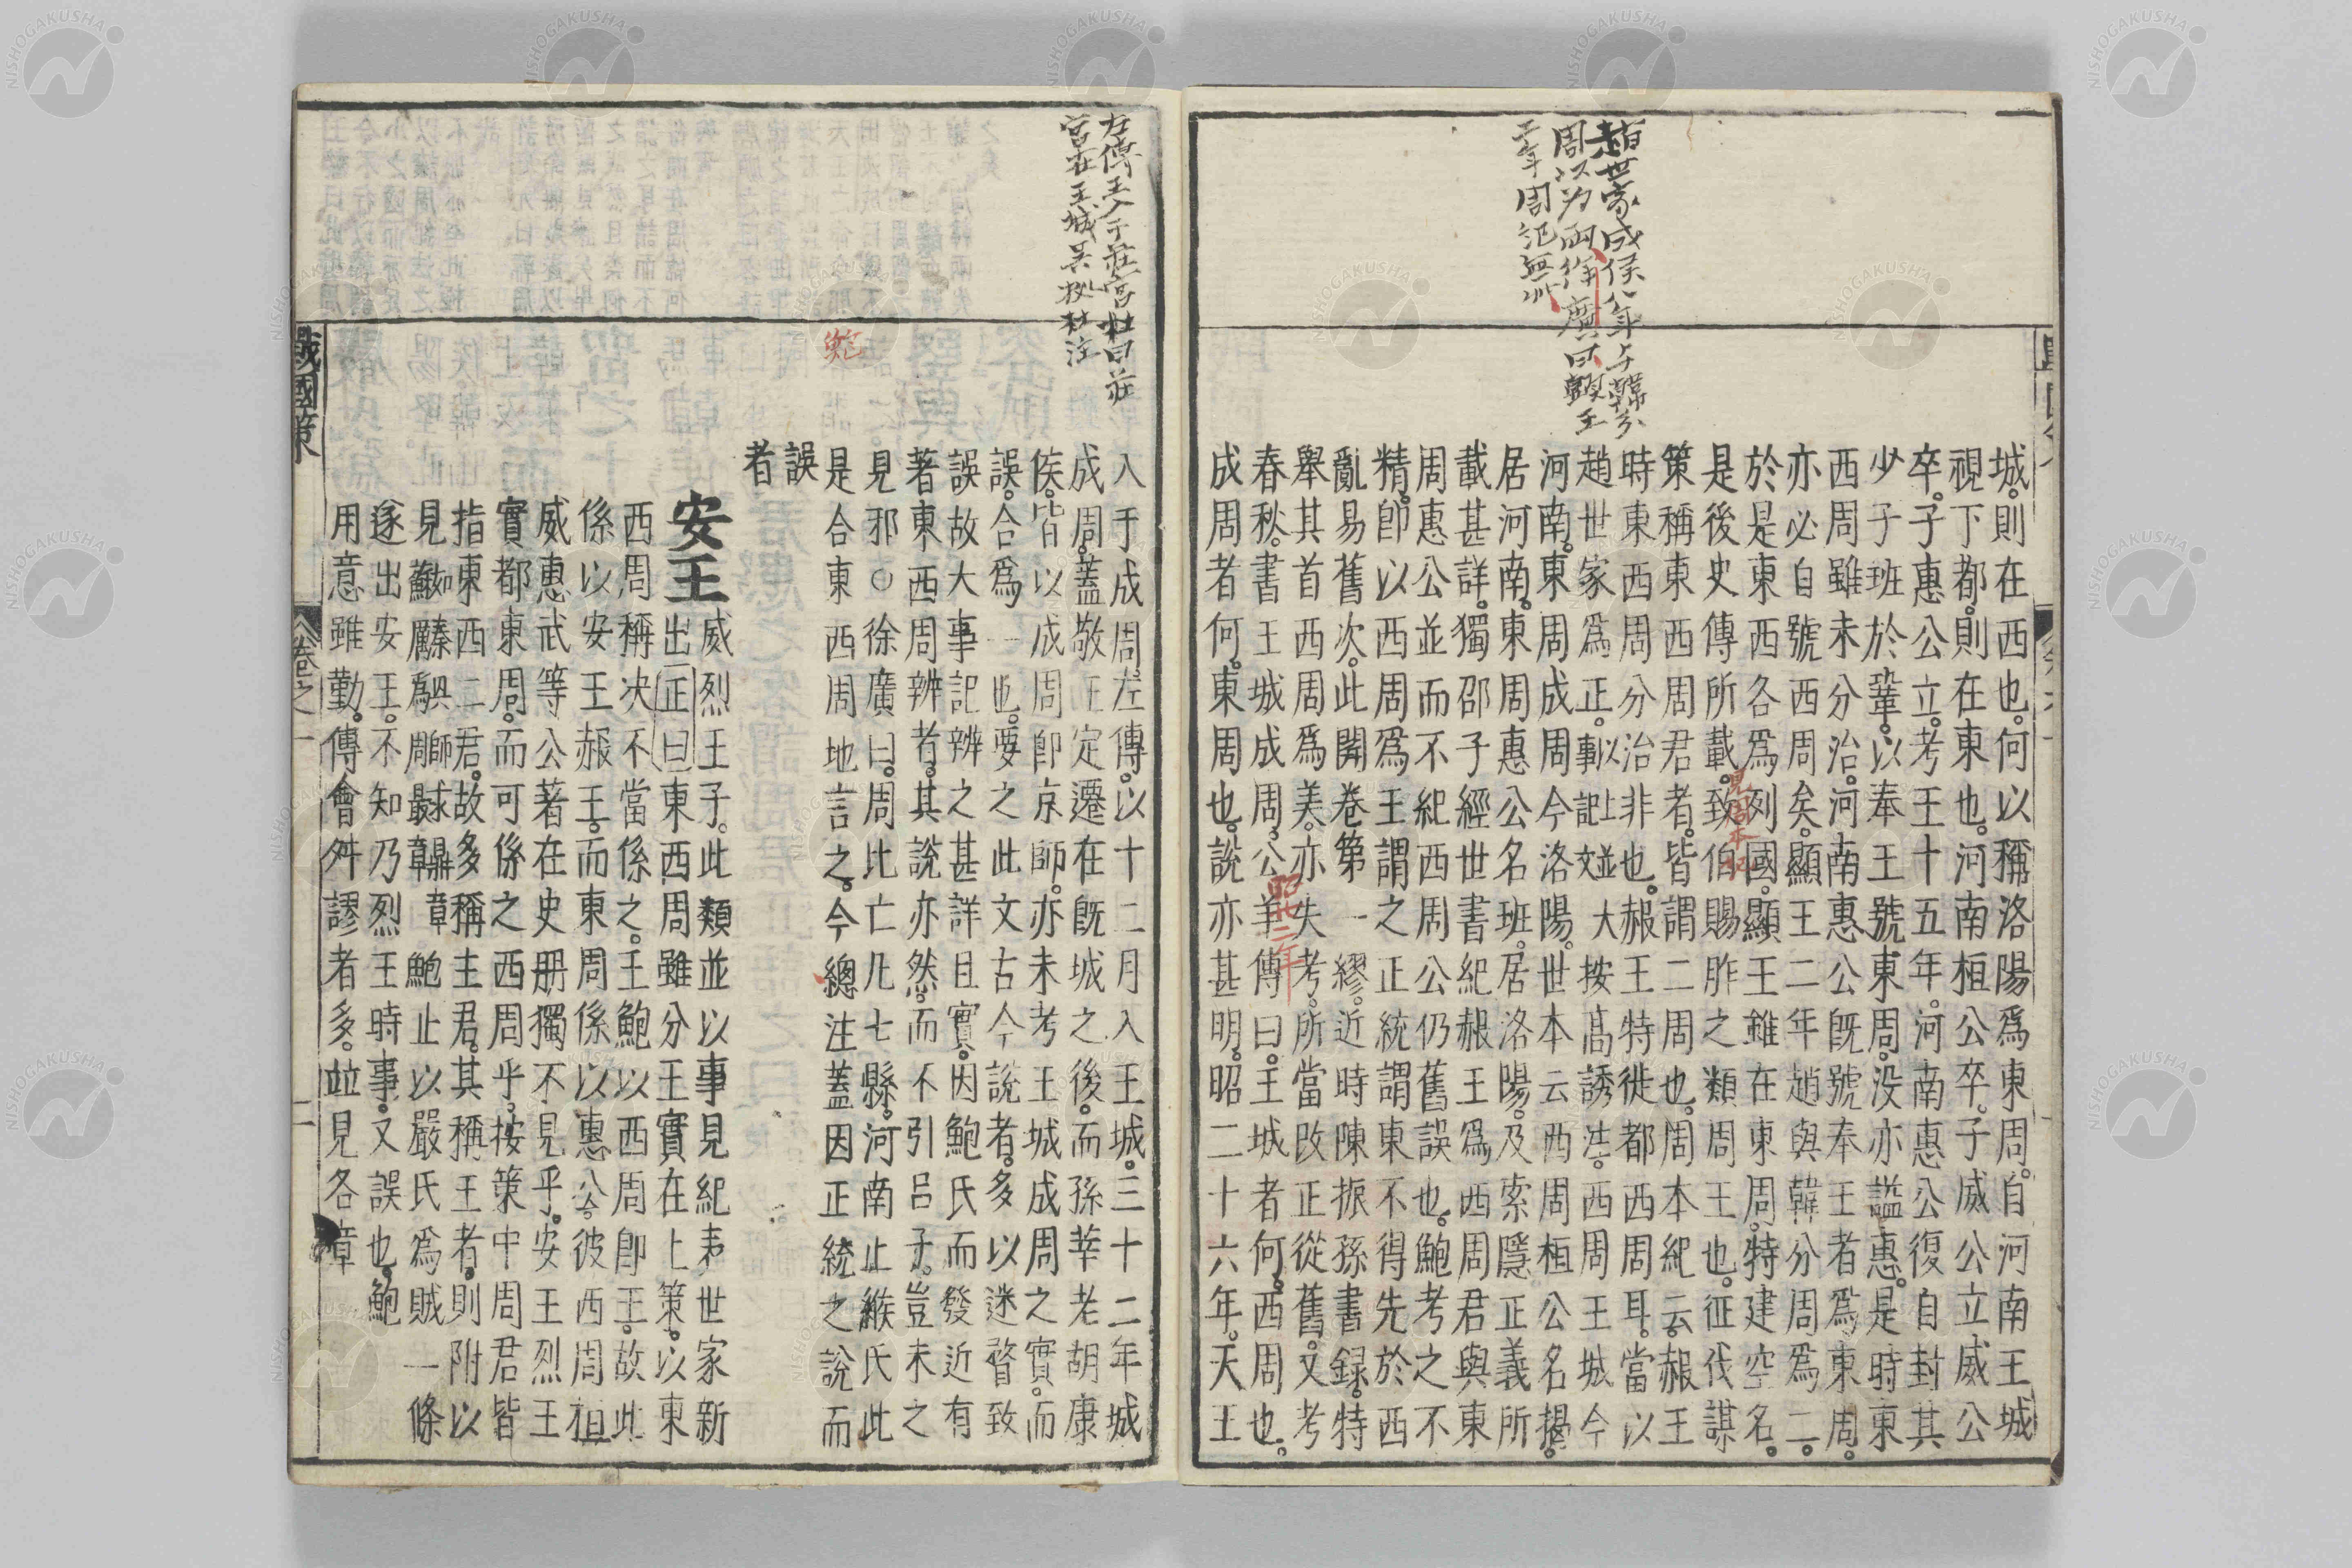 趙世家成侯八年与韓分
周以为兩徐廣曰顯王
二年周紀無
城則在西也何以稱洛陽爲東周自河南王城
視下都則在東也河南桓公卒子威公立威公
卒子惠公立考王十五年河南惠公復自封其
少子班於鞏以奉王號東周没亦謚惠是時東
西周雖未分治河南惠公旣號奉王者爲東周
亦必自號西周矣顯王二年趙與韓分周爲二
於是東西各爲列國顯王雖在東周特建空名
是後史傳所載致伯賜胙之類周王也征伐謀
見周本紀
策稱東西周君者皆謂二周也周本紀云赧王
時東西周分治非也赧王特徙都西周耳當以
趙世家爲正以上並大事記按高誘注西周王城今
河南東周成周今洛陽世本云西周桓公名揭
居河南東周惠公名班居洛陽及索隱正義所
載甚詳獨邵子經世書紀赧王爲西周君與東
周惠公並而不紀西周公仍舊誤也鮑考之不
精卽以西周爲王謂之正統謂東不得先於西
亂易舊次此開卷第一繆近時陳振孫書録特
舉其首西周爲美亦失考所當改正從舊文考
春秋書王城成周公羊傳曰王城者何西周也
昭廿二年
成周者何東周也說亦甚明昭二十六年天王
左傳王入于莊宮杜曰莊
宮在王城吴拠杜注
入于成周左傳以十二月入王城三十二年城
成周蓋敬王定遷在旣城之後而孫莘老胡康
侯皆以成周卽京師亦未考王城成周之實而
誤合爲一也要之此文古今說者多以迷瞀致
誤故大事記辨之甚詳且實因鮑氏而發近有
著東西周辨者其說亦然而不引呂子豈未之
見邪○徐廣曰周比亡凡七縣河南止緱氏此
鮑
是合東西周地言之今總注蓋因正統之說而
誤
者
安王威烈王子此類並以事見紀表世家新
出正曰東西周雖分王實在上策以東
西周稱决不當係之王鮑以西周卽王故此
係以安王赧王而東周係以惠公彼西周桓
威惠武等公著在史册獨不見乎安王烈王
實都東周而可係之西周乎按策中周君皆
指東西二君故多稱主君其稱王者則附以
章鮑止以嚴氏爲賊一條
遂出安王不知乃烈王時事又誤也鮑
用意雖勤傳會舛謬者多並見各章
戰國策
卷之一
二